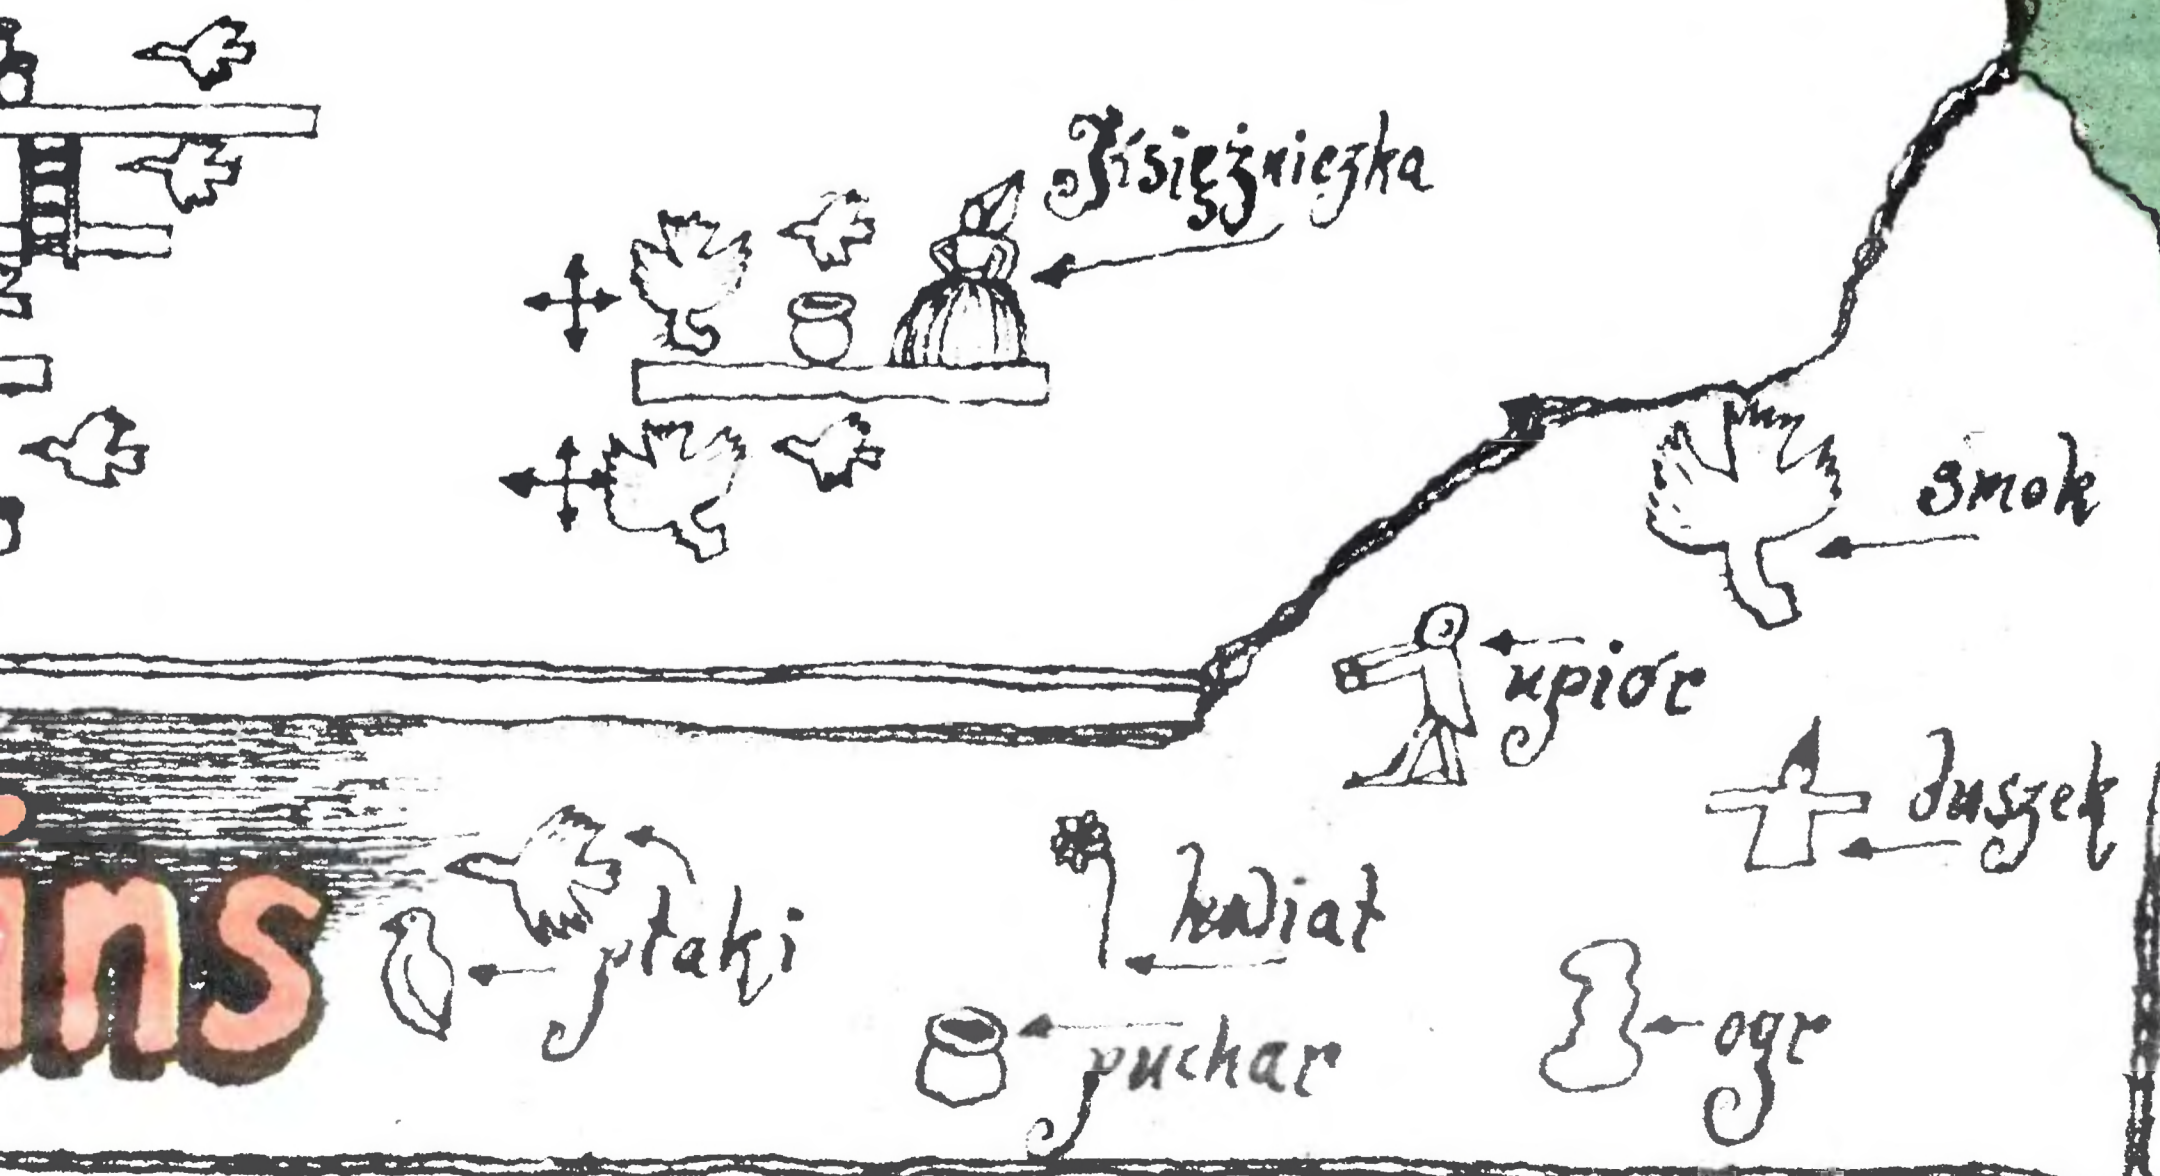 Księżniczka
smok
upiór
duszek
ptaki
kwiat
puchar
ogr
ins